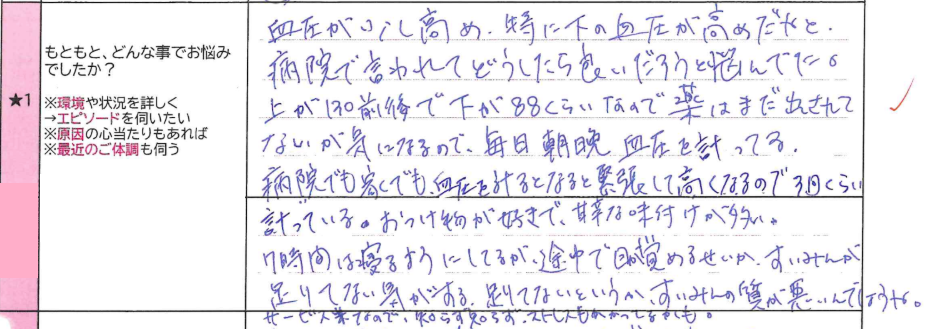 ★1
もともと、どんな事でお悩み
でしたか？
※環境や状況を詳しく
→エピソードを伺いたい
※原因の心当たりもあれば
※最近のご体調も伺う
血圧が少し高め、特に下の血圧が高めだヤと、
病院で言われてどうしたら良いだろうと悩んでた。
上が130前後で下が88くらいなので薬はまだ出されて
ないが気になるので、毎日朝晩血圧を計ってる。
病院でも家でも、血圧を計るとなると緊張して高くなるので3回くらい
計っている。おつけ物が好きで、甘辛な味付けが多い。
7時間は寝るようにしてるが、途中で目が覚めるせいか、すいみんが
足りてない気がする。足りてないというか、すいみんの質が悪いんでしょうね。
サービス業なので、知らず知らず、ストレスもあったしなかも。